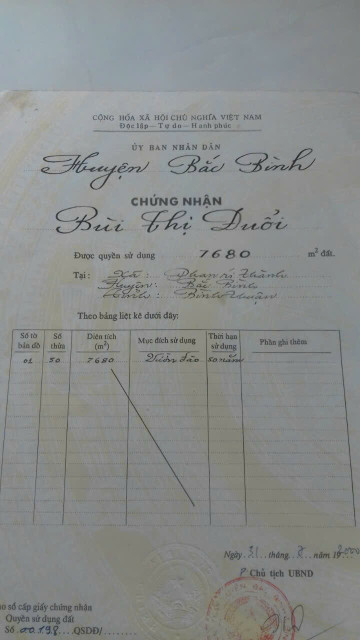 CỘNG HÒA XÃ HỘI CHỦ NGHĨA VIỆT NAM
Độc lập - Tự do - Hạnh phúc
ỦY BAN NHÂN DÂN
Huyện Bắc Bình
CHỨNG NHẬN
Bùi Thị Duổi
Được quyền sử dụng 7680 m² đất.
Tại : Xã : Phan Rí Thành
Huyện: Bắc Bình
Tỉnh : Bình Thuận
Theo bảng liệt kê dưới đây:
Số tờ bản đồ Số thửa Diện tích (m²) Mục đích sử dụng Thời hạn sử dụng Phần ghi thêm
01 50 7680 Vườn đào 50 năm
Ngày 31 tháng 8 năm 2000
Chủ tịch UBND
o số cấp giấy chứng nhận
Quyền sử dụng đất
Số 00198 QSDĐ/